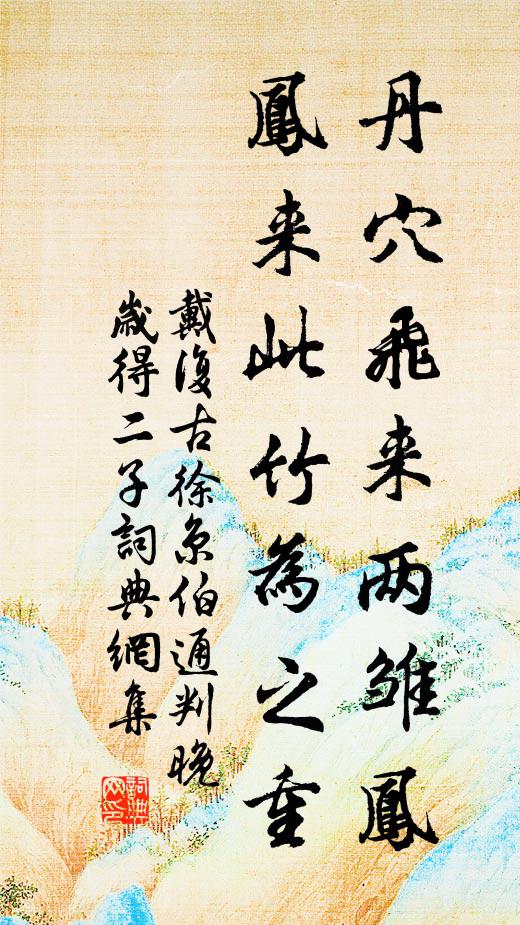 丹穴飛来两雏鳳
鳳来此竹為之重
戴復古徐京伯通判晚
歲得二子詞典網集
詞典網印